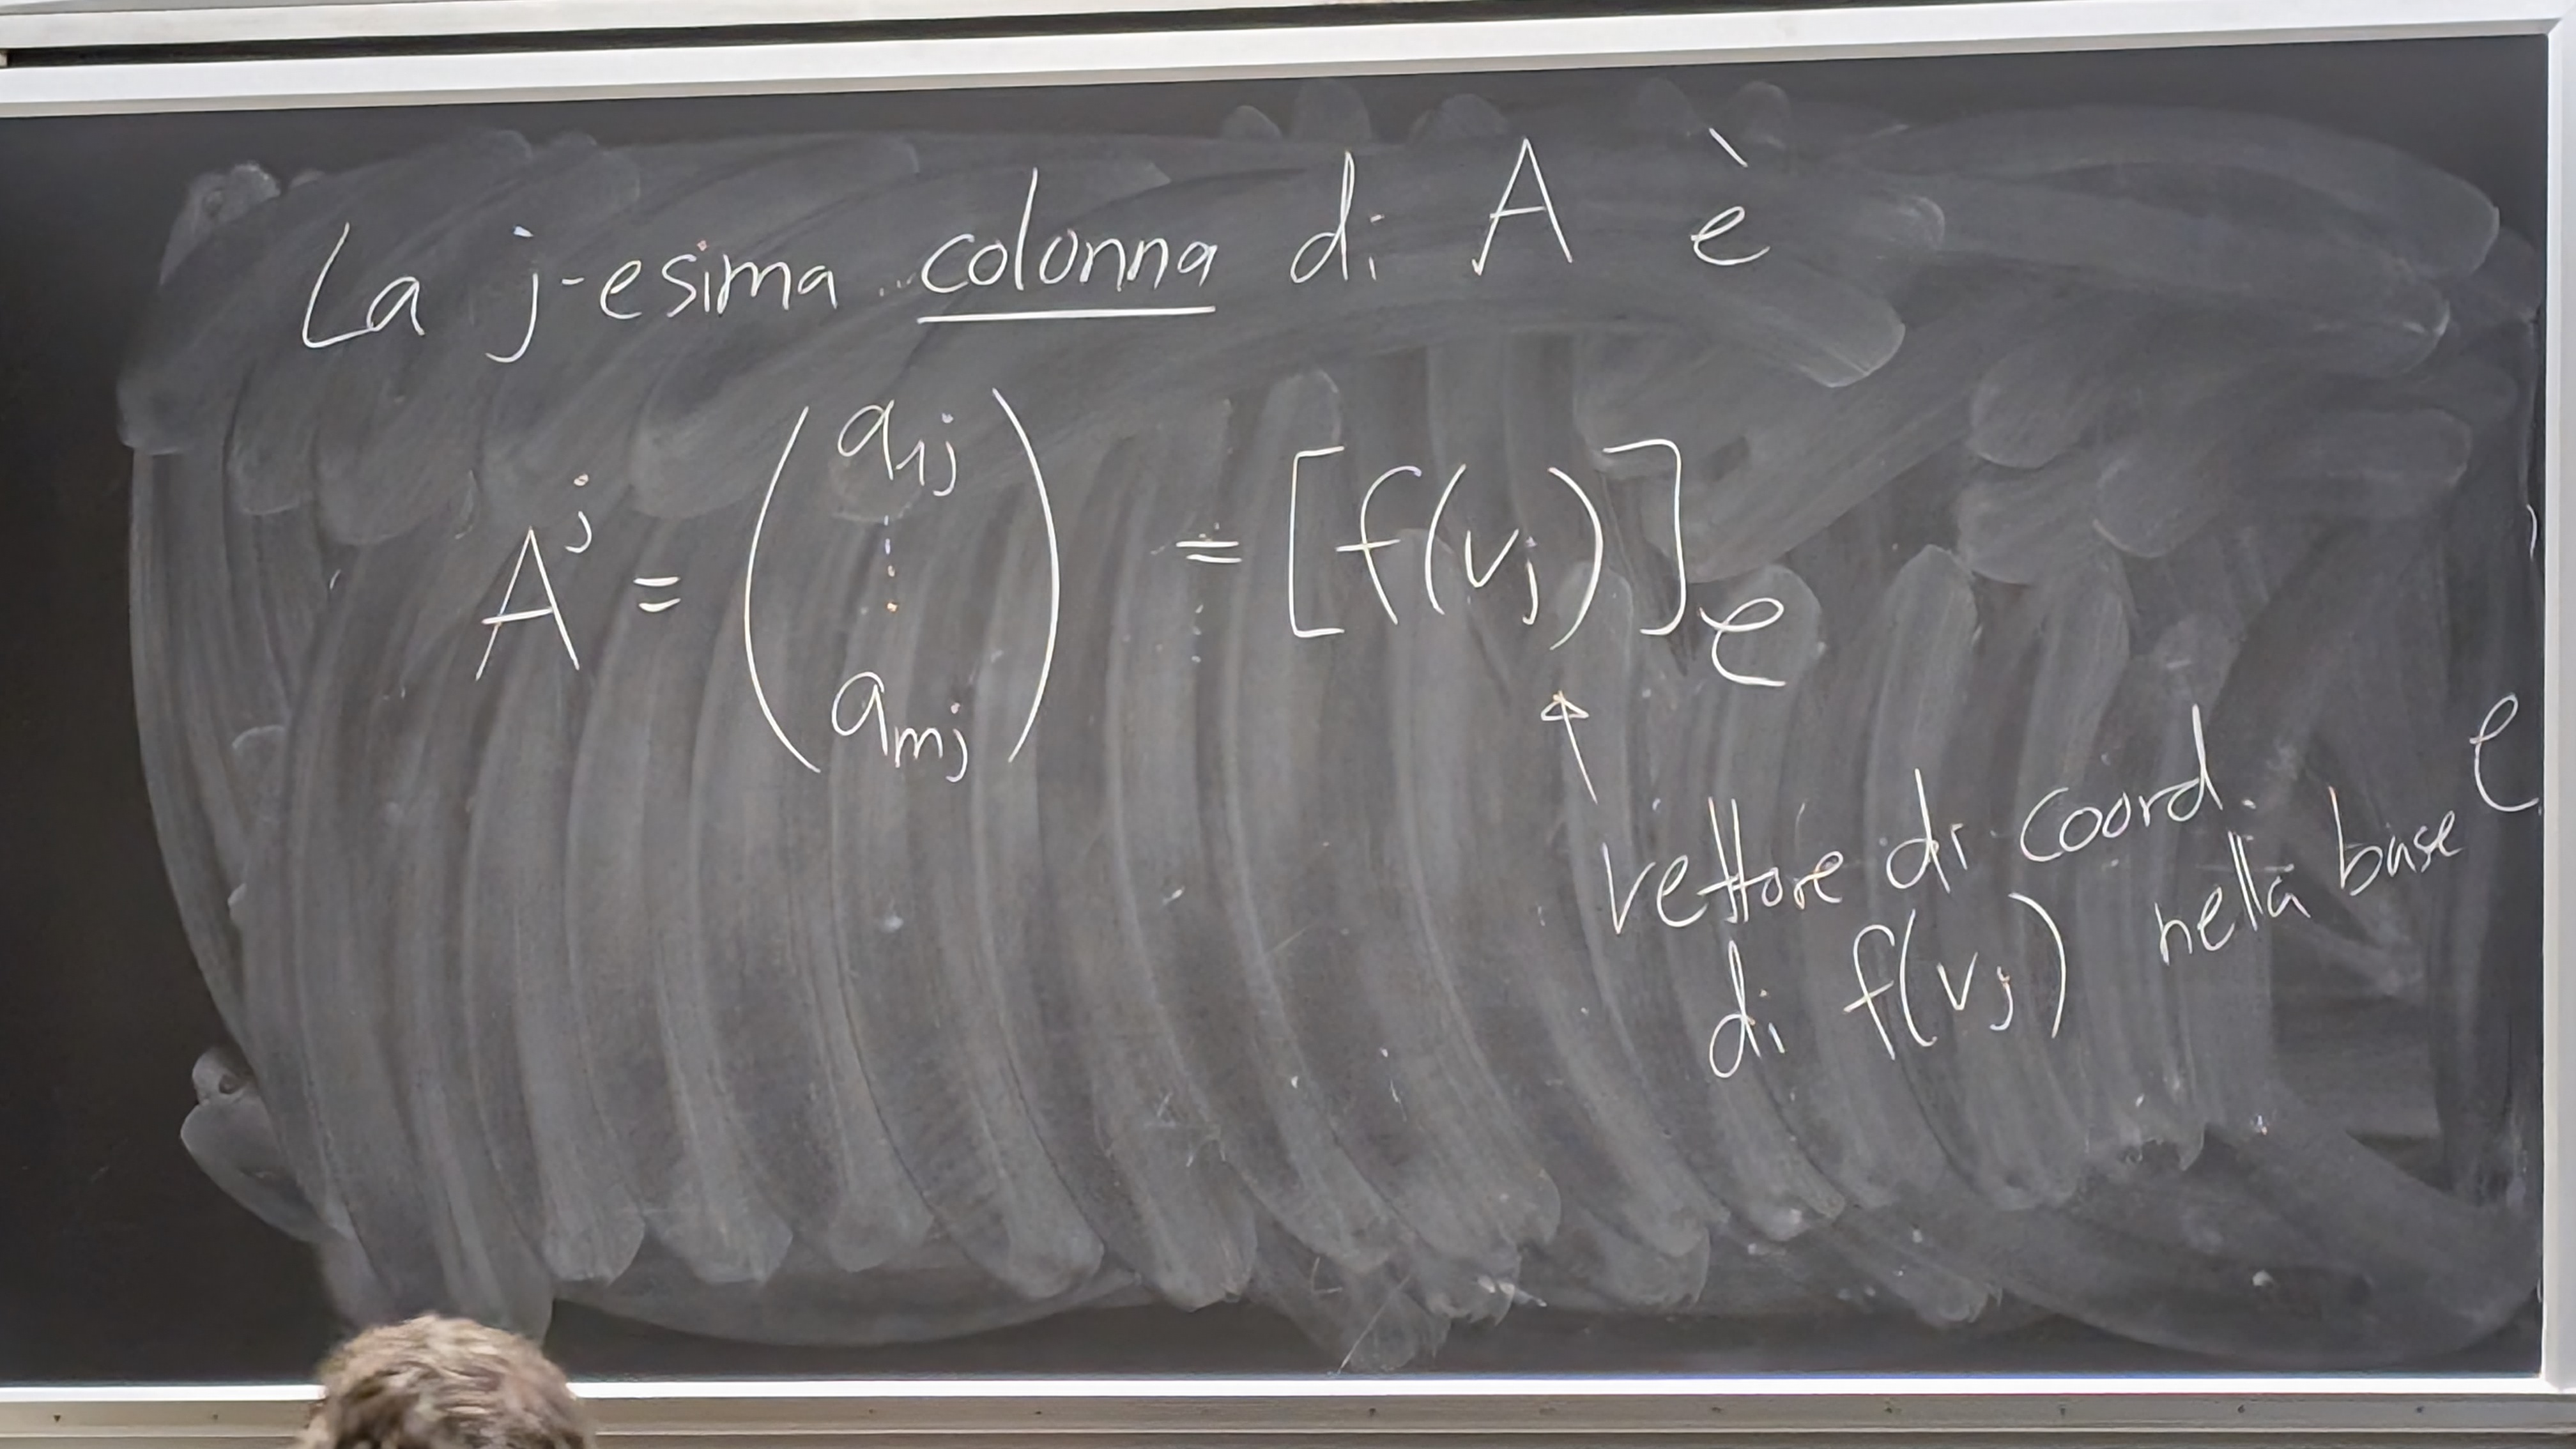 La j-esima colonna di A è
A^j = \begin{pmatrix} a_{1j} \\ \vdots \\ a_{mj} \end{pmatrix} = [f(v_j)]_\mathcal{C}
↑
vettore di coord.
di f(v_j) nella base \mathcal{C}